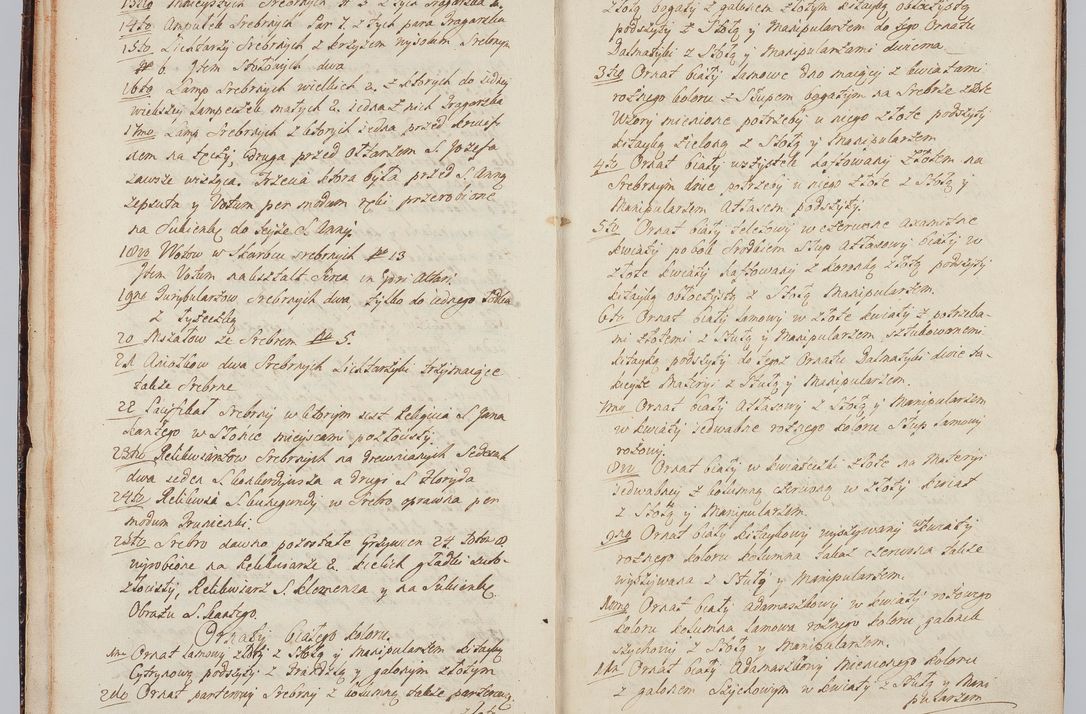 14to Ampułek Srebrnych Par 7. z tych para Dragarska
15to Lichtarzy Srebrnych z krzyżem wysokim Srebrnym
No 6. Item Srebrnych dwa
16to Lamp Srebrnych wielkich 2. z ktorych do iedney
wiekszey Lampeczek małych 2. iedna z nich Dragarska
17mo Lamp Srebrnych 3 ktorych iedna przed krucif-
xem na tęczy, druga przed Ołtarzem S. Jozefa
zawsze wisząca. Trzecia ktora była przed S. Anną
zepsuta y Votum per modum ręki przerobione
na Sukienkę do teyże S. Anny.
18vo Wotow w Skarbcu srebrnych No 13
Item Votum nakształt Serca in
19no Turybularzow Srebrnych dwa, tylko do iednego Łodka
z Łyżeczką
20 Mszałow ze Srebrem No 5.
21 Aniołkow dwa Srebrnych Lichtarzyki trzymaiące
także Srebrne
22 Pacyfikał Srebrny w ktorym iest Reliquia S. Jana
Kantego w Słońce mieyscami pozłocisty.
23tio Relikwiarzow Srebrnych na drewnianych Sedesach
dwa ieden S. a drugi S. Floryana
24to Relikwia S. Kunegundy w Srebro oprawna per
modum Trunienki.
25to Srebro dawno pozostałe Grzywien 24
wyrobione na Relikwiarze 2. Kielich gładki suto-
złocisty, Relikwiarz S. Klemensa y na Sukienkę
Obrazu S. Kantego.
Ornaty białego koloru.
1mo Ornat Lamowy złoty z Stołą y Manipularzem kitayką
Cytrynową podszyty z Frandzlą y galonem złotym
2do Ornat parterowy Srebrny z kolumną także parterową
złotą bogaty z galonem złotym kitayką obłoczystą
podszyty z Stołą y Manipularzem do tego Ornatu
Dalmatyki z Stołą y Manipularzami dwiema
3tio Ornat biały Lamowe dno maiący z kwiatami
rożnego koloru z Słupem bogatym na Srebrze złote
Wzory mienione potrzeby u niego złote podszyty
kitayką zieloną z Stołą y Manipularzem
4to Ornat biały wszystek haftowany złotem na
Srebrnym dnie potrzeby u niego złote z Stołą y
Manipularzem Atłasem podszyty.
5to Ornat biały w czerwone axamitne
kwiaty po bokach Srodkiem Słup Atłasowy biały w
złote kwiaty haftowany z koronką złotą podszyty
kitayką obłoczystą z Stołą Manipularzem.
6to Ornat biały Lamowy w złote kwiaty z potrzeba-
mi złotemi z Stułą y Manipularzem sztukowanemi
kitayką podszyty do tegoż Ornatu Dalmatyki dwie ta-
kieyże Materyi z Stułą y Manipularzem.
7mo Ornat biały Atłasowy z Stołą y Manipularzem
w kwiaty iedwabne rożnego koloru Słup Lamowy
rożowy.
8vo Ornat biały w kwiateczki złote na Materyi
iedwabney z kolumną czerwoną w złoty kwiat
z Stołą y Manipularzem.
9no Ornat biały kitaykowy wyszywany w kwiaty
rożnego koloru kolumna także czerwona także
wyszywana z Stułą y Manipularzem.
10mo Ornat biały adamaszkowy w kwiaty rożowego
koloru kolumna Lamowa rożnego koloru galonik
szychowy z Stołą y Manipularzem.
11mo Ornat biały Adamaszkowy mienionego koloru
z galonem Szychowym w kwiaty z Stułą y Mani
pularzem